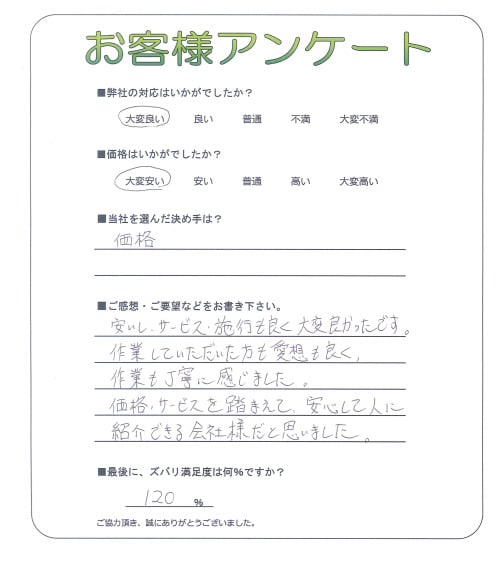 お客様アンケート
■弊社の対応はいかがでしたか？
大変良い 良い 普通 不満 大変不満
■価格はいかがでしたか？
大変安い 安い 普通 高い 大変高い
■当社を選んだ決め手は？
価格
■ご感想・ご要望などをお書き下さい。
安いし、サービス・施行も良く大変良かったです。
作業していただいた方も愛想も良く、
作業も丁寧に感じました。
価格、サービスを踏まえて、安心して人に
紹介できる会社様だと思いました。
■最後に、ズバリ満足度は何％ですか？
120 ％
ご協力頂き、誠にありがとうございました。